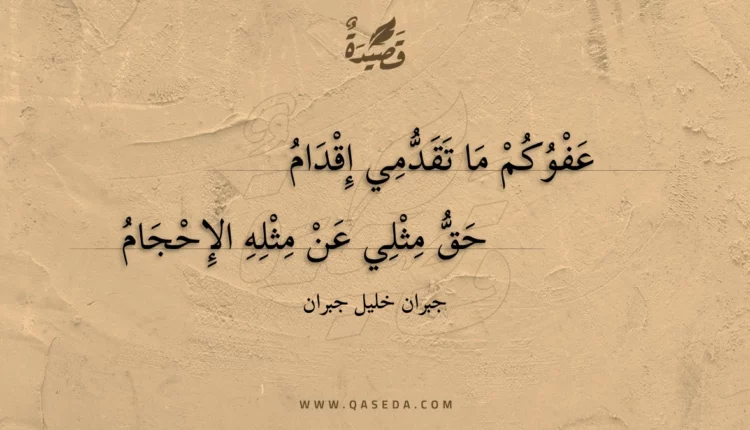 قَصِيدَةٌ
عَفْوُكُمْ مَا تَقَدُّمِي إِقْدَامُ
حَقُّ مِثْلِي عَنْ مِثْلِهِ الإِحْجَامُ
جبران خليل جبران
WWW.QASEDA.COM